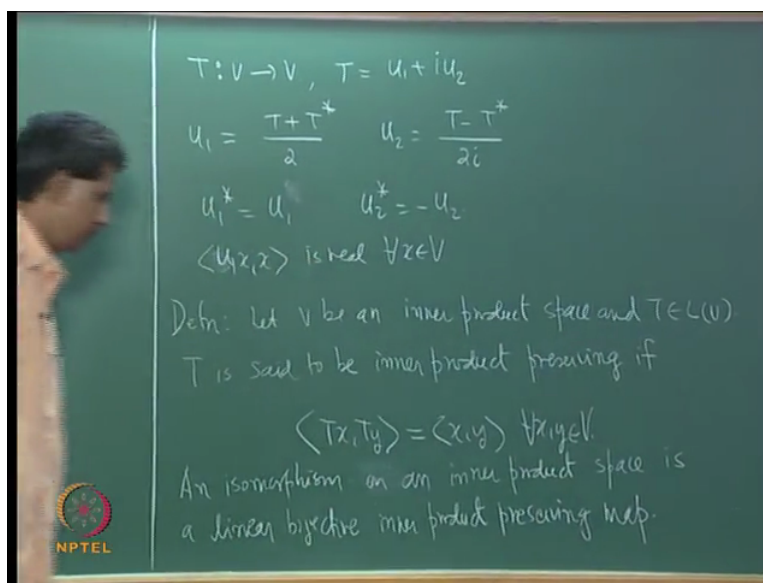 T: V → V, T = U₁ + iU₂
U₁ = (T + T*)/2   U₂ = (T - T*)/2i
U₁* = U₁   U₂* = -U₂.
⟨U₁x, x⟩ is real ∀x∈V
Defn: Let V be an inner product space and T∈L(V).
T is said to be inner product preserving if
⟨Tx, Ty⟩ = ⟨x, y⟩ ∀x, y∈V.
An isomorphism on an inner product space is
a linear bijective inner product preserving map.
NPTEL